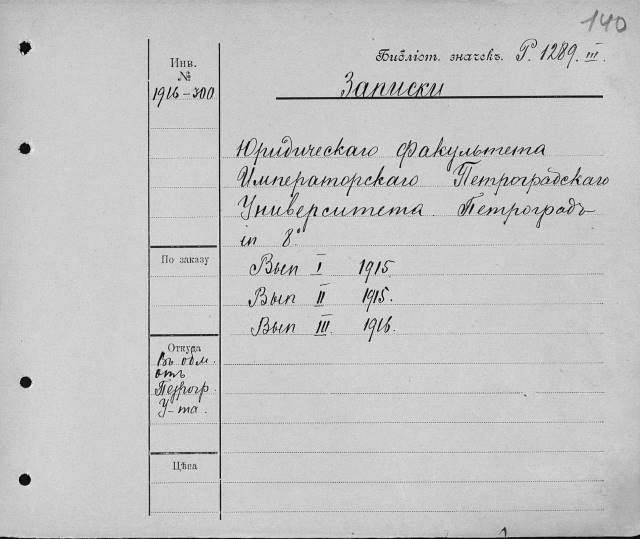 140
Библіот. значекъ. Р. 1289. III.
Инв.
№
1916-300
Записки
Юридическаго факультета
Императорскаго Петроградскаго
Университета. Петроградъ
in 8°
По заказу
Вып I 1915.
Вып II 1915.
Вып III. 1916.
Откуда
Въ обм.
отъ
Петрогр.
У-та.
Цѣна